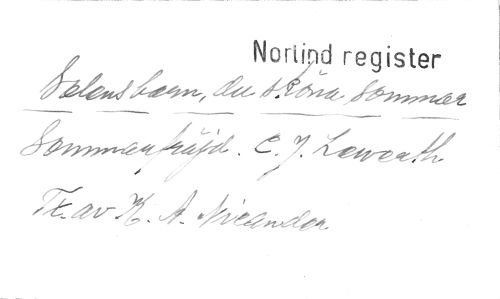 Norlind register
Solens barn, du sköna sommar
Sommarfröjd. C. J. Lewerth
Tx. av K. A. Nicander